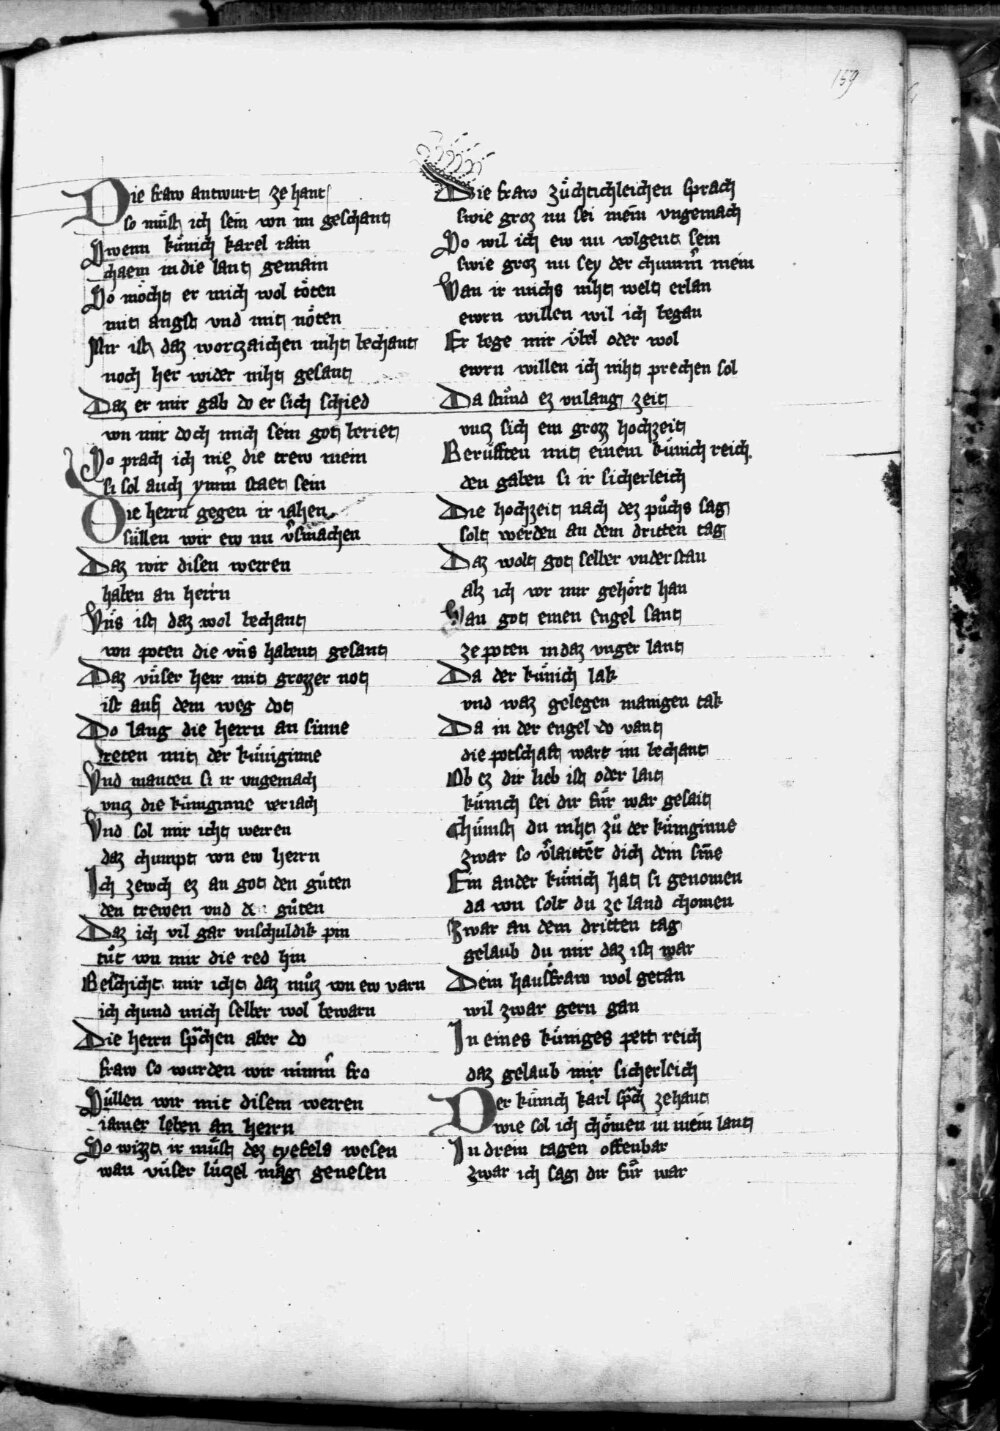 159
Die fraw antwurt ze hant
so muͤst ich sein von im geschant
Swenn kuͤnich karel rain
chaem in die lant gemain
So moͤcht er mich wol toͤten
mit angst vnd mit noͤten
Mir ist daz worczaichen niht bechant
noch her wider niht gesant
Daz er mir gab do er sich schied
von mir doch mich sein got beriet
So prach ich nie die trew mein
si sol auch ymm̄ staet sein
Die herrn gegen ir iahen
suͤllen wir ew nu v̄smachen
Daz wir disen werren
haben an herrn
Vns ist daz wol bechant
von poten die vns habent gesant
Daz vnser herr mit grozzer not
ist auf dem weg dot
Do lang die herrn an sinne
reten mit der kuͤniginne
Vnd manten si ir vngemach
vncz die kuͤniginne veriach
Vnd sol mir icht werren
daz chumpt von ew herrn
Ich zewch ez an got den guͤten
den trewen vnd den guͤten
Daz ich vil gar vnschuldik pin
tuͦt von mir die red hin
Beschicht mir icht daz muͦz von ew varn
ich chund mich selber wol bewarn
Die herrn sp̄chen aber do
fraw so wurden wir nimm̄ fro
Suͤllen wir mit disem werren
iamer leben an herrn
So wizzt ir muͤst dez tyefels wesen
wan vnser luͤczel mag genesen
Die fraw zuͤchtichleichen sprach
swie groz nu sei mein vngemach
So wil ich ew nu volgent sein
swie groz nu sey der chumm̄ mein
Wan ir michs niht welt erlan
ewrn willen wil ich began
Er bege mir vbel oder wol
ewrn willen ich niht prechen sol
Da stuͦnd ez vnlang zeit
vncz sich ein groz hochzeit
Beruͤfften mit einem kuͤnich reich
den gaben si ir sicherleich
Die hochzeit nach dez puͦchs sag
solt werden an dem dritten tag
Daz wolt got selber vnderstan
alz ich vor mir gehoͤrt han
Wan got einen engel sant
ze poten in daz vnger lant
Da der kuͤnich lak
vnd waz gelegen manigen tak
Da in der engel do vant
die potschaft wart im bechant
Ob ez dir lieb ist oder lait
kuͤnich sei dir fuͤr war gesait
Chuͤmst du niht zuͦ der kuͤniginne
zwar so v̄laitet dich dein sinne
Ein ander kuͤnich hat si genomen
da von solt du ze land chomen
Zwar an dem dritten tag
gelaub du mir daz ist war
Dein hausfraw wol getan
wil zwar gern gan
In eines kuͤniges pett reich
daz gelaub mir sicherleich
Der kuͤnich karl sp̄ch zehant
wie sol ich choͤmen in mein lant
In drein tagen offenbar
zwar ich sag dir fuͤr war